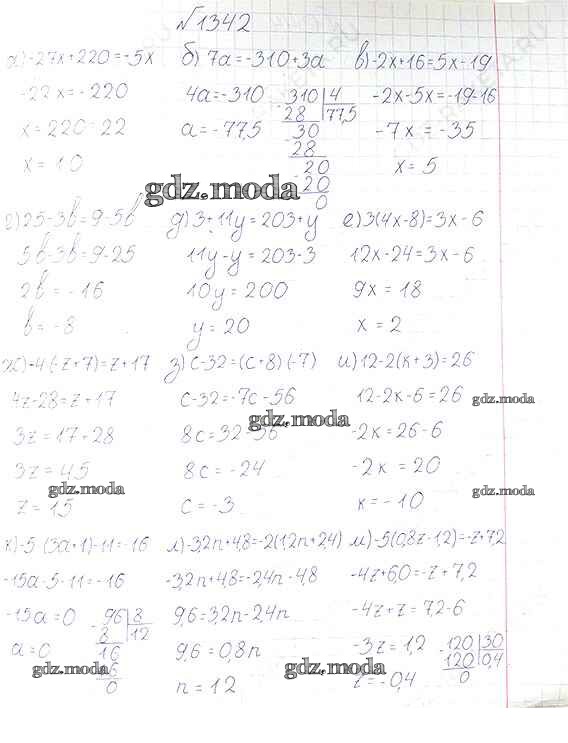 №1342
а) -27x+220=-5x
-22x=-220
x=220:22
x=10
б) 7a=-310+3a
4a=-310
a=-77,5
310 | 4
28 | 77,5
30
28
20
20
0
в) -2x+16=5x-19
-2x-5x=-19-16
-7x=-35
x=5
gdz.moda
г) 25-3b=9-5b
5b-3b=9-25
2b=-16
b=-8
д) 3+11y=203+y
11y-y=203-3
10y=200
y=20
е) 3(4x-8)=3x-6
12x-24=3x-6
9x=18
x=2
ж) -4(-z+7)=z+17
4z-28=z+17
3z=17+28
3z=45
z=15
з) c-32=(c+8)(-7)
c-32=-7c-56
8c=32-56
8c=-24
c=-3
и) 12-2(k+3)=26
12-2k-6=26
-2k=26-6
-2k=20
k=-10
gdz.moda
gdz.moda
gdz.moda
gdz.moda
к) -5(3a+1)-11=-16
-15a-5-11=-16
-15a=0
a=0
96 | 8
8 | 12
16
16
0
л) -3,2n+4,8=-2(1,2n+2,4)
-3,2n+4,8=-2,4n-4,8
9,6=3,2n-2,4n
9,6=0,8n
n=12
м) -5(0,8z-1,2)=-z+7,2
-4z+6,0=-z+7,2
-4z+z=7,2-6
-3z=1,2
z=-0,4
120 | 30
120 | 0,4
0
gdz.moda
gdz.moda